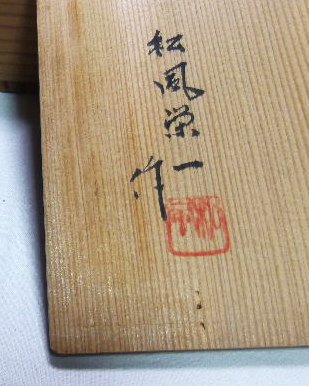 松風栄一作